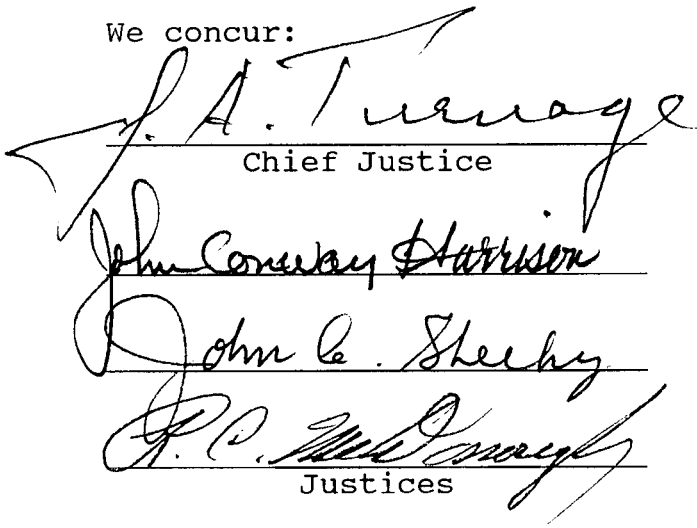 We concur:
J. A. Turnage
Chief Justice
John Conway Harrison
John C. Sheehy
R. C. McDonough
Justices